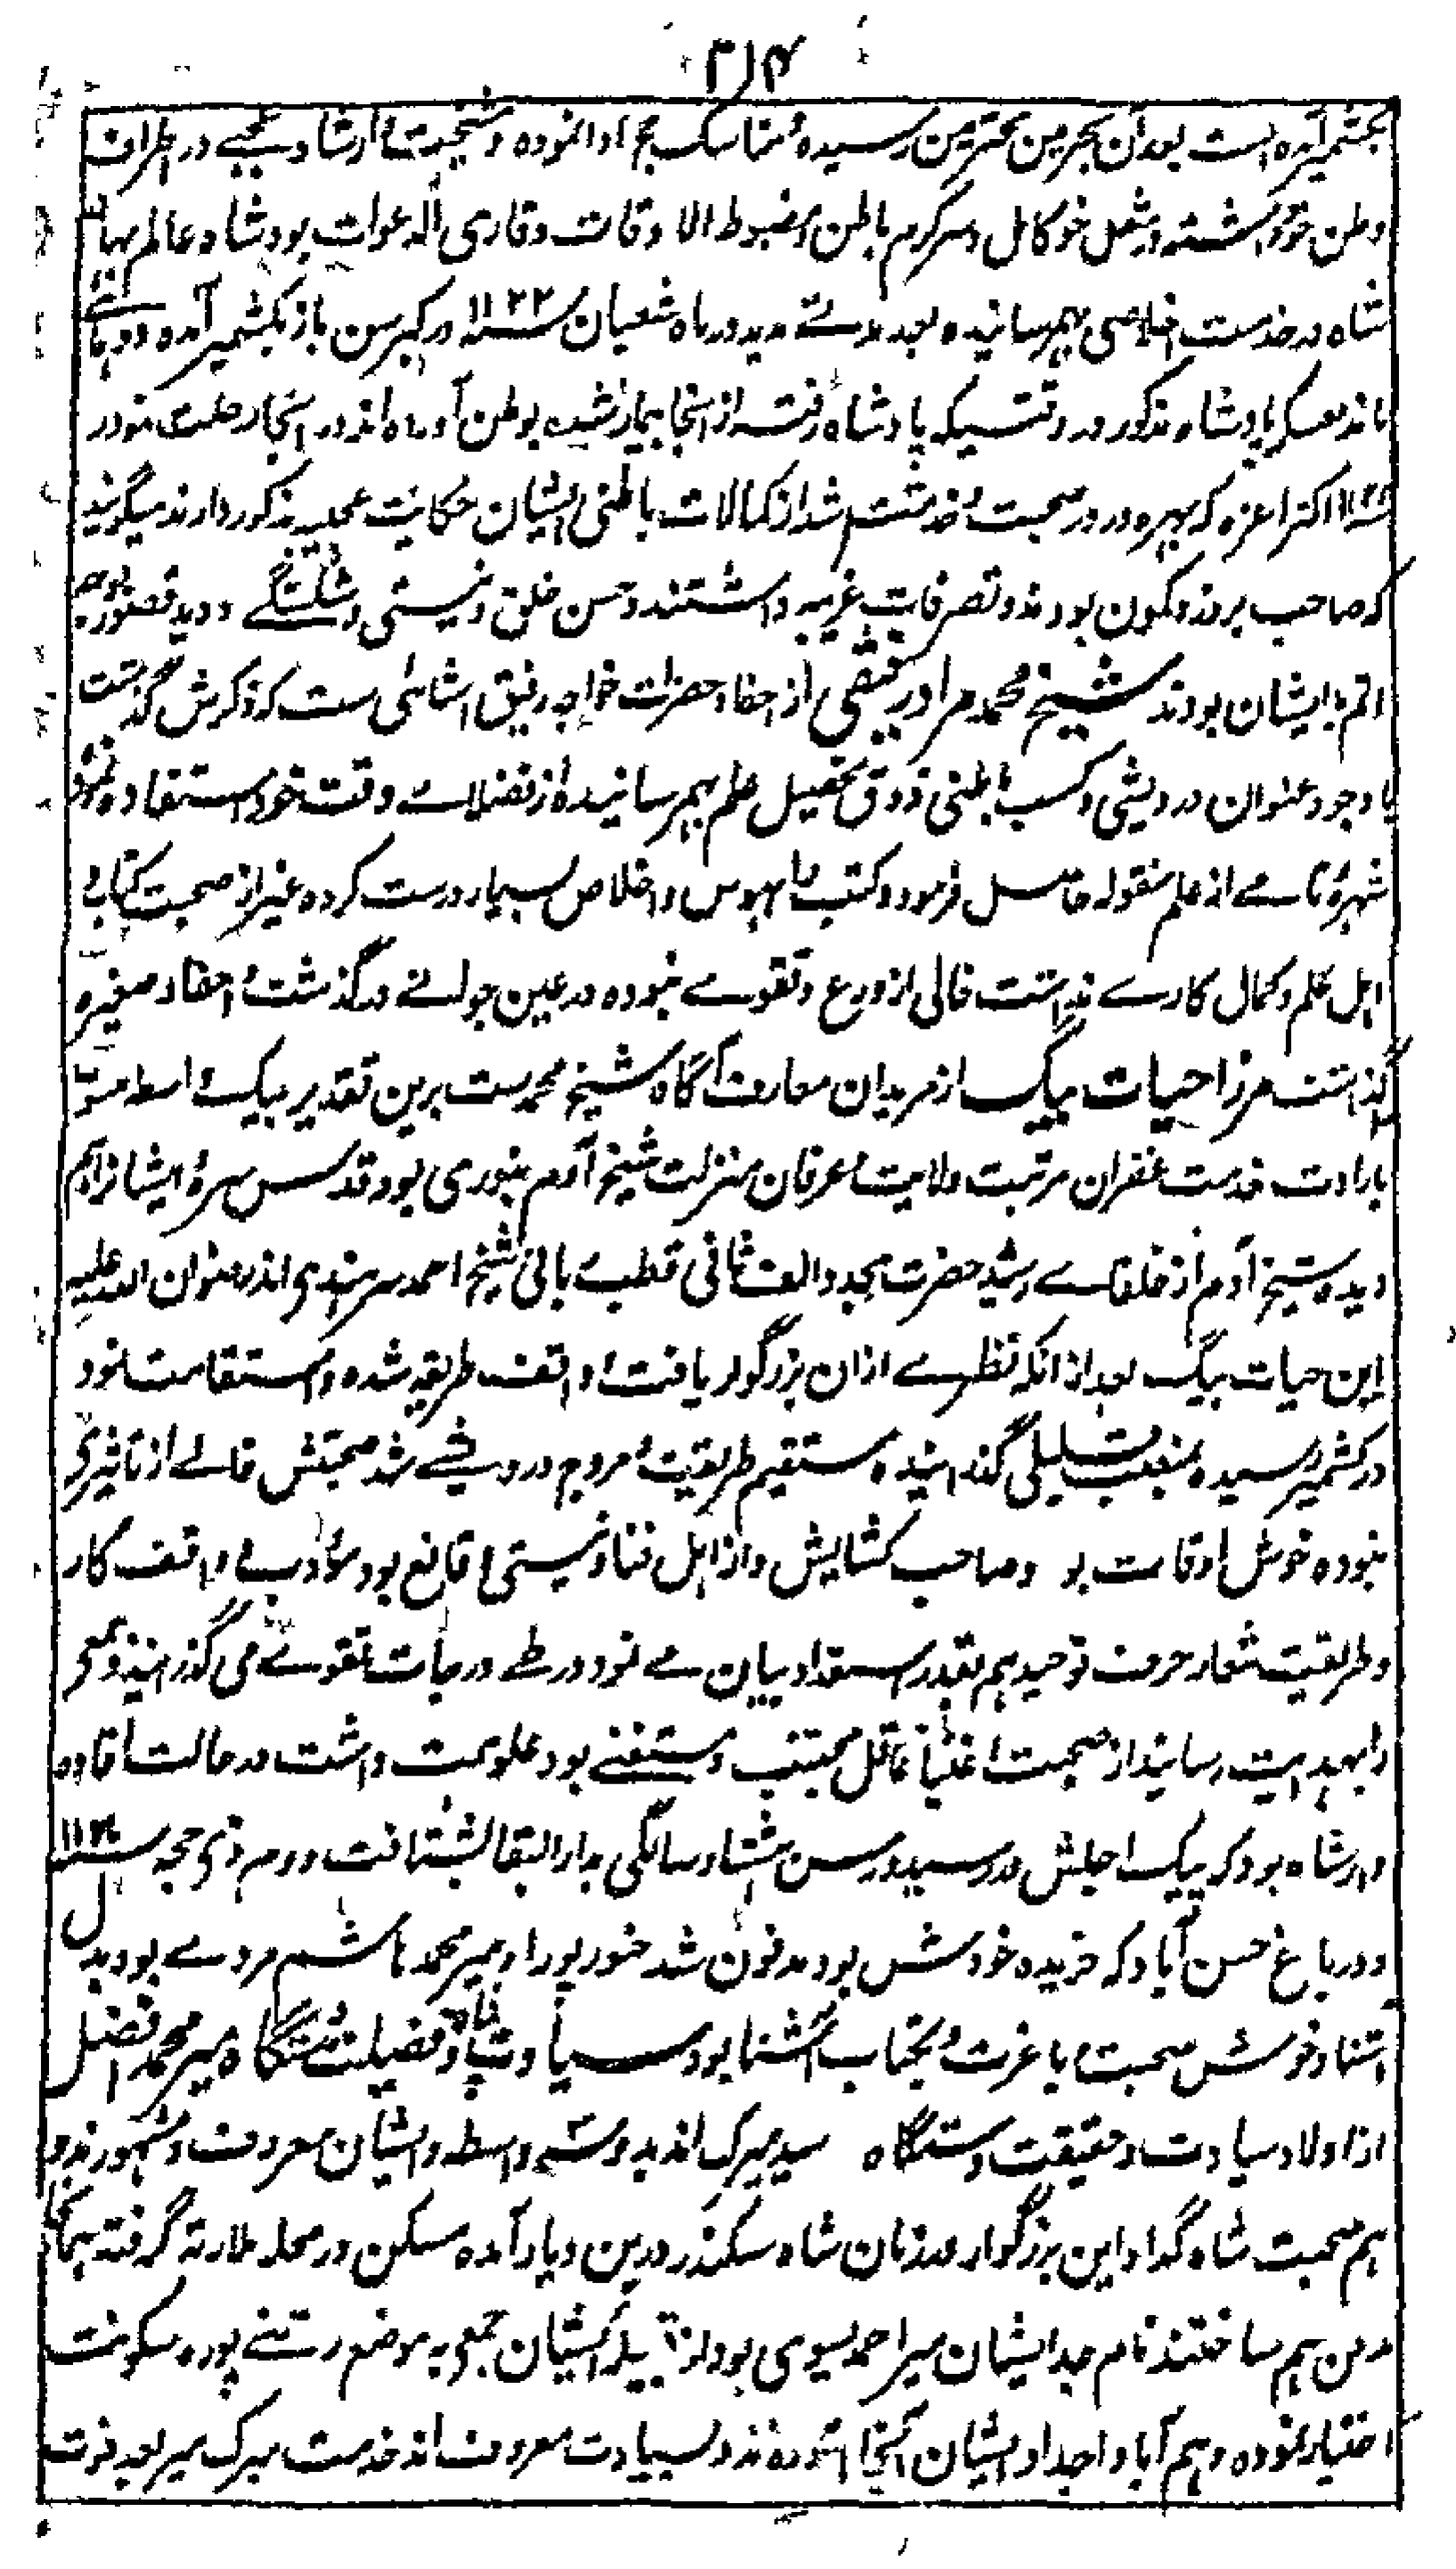 ۳۱۴
بکشمیر آمده است بعد آن بحرمین محترمین رسیده مناسک حج ادا نموده و شیخیت و ارشاد عجبے در اطراف
وطن خود داشته و بشغل خو کامل و سرگرم باطن و مضبوط الاوقات و قاری الدعوات بود شاه عالم بهادر
شاه در خدمت اخلاصی بهمرسانیده بعد مدتے مدید در ماه شعبان سنه ۱۱۲۲ در کبر سن باز بکشمیر آمده دو ماهے
ماند معسکر پادشاه مذکور در وقتیکه پادشاه رفت از انجا بیمار شده بوطن آمده اند در انجا رحلت نمود در
سنه اکثر اعزه که بهره ور در صحبت و خدمتش شد از کمالات باطنی ایشان حکایت عجیبه مذکور دارند میگویند
که صاحب بروز و کمون بودند و تصرفات غریبه داشتند و حسن خلق و نیستی و شکستگے و دید قصور بوجه
اتم با ایشان بودند شیخ محمد مراد رفیقی از احفاد حضرات خواجه رفیق اشائی ست که ذکرش گذشت
با وجود عنوان درویشی و کسب باطنی ذوق تحصیل علم بهمرسانیده از فضلاے وقت خود استفاده نموده
شهرهٔ تامے از علم منقوله حاصل فرمود و کتب بسیار درست کرده غیر از صحبت کتاب و
اهل علم و کمال کارے نداشت خالی از ورع و تقوے نبوده در عین جوانے درگذشت و احفاد صغیره
گذاشت مرزا حیات بیگ از مریدان معارف آگاه شیخ محمد ست برین تقدیر بیک واسطه منسوب
بارادت خدمت غفران مرتبت ولایت و عرفان منزلت شیخ آدم بنوری بود قدس سره ایشانرا هم
دیده شیخ آدم از خلفاے رشید حضرت مجدد الف ثانی قطب ربانی شیخ احمد سرهندی اند رضوان الله علیه
این حیات بیگ بعد از انکه نظرے ازان بزرگوار یافت و واقف طریقه شده و استقامت نمود
در کشمیر رسیده بمنصب قلیلی گذرانیده مستقیم طریقت و مروج درویشے شد صحبتش خالے از تاثیری
نبوده خوش اوقات بود و صاحب کشایش و از اهل فنا و نیستی و قانع بود و مؤدب و واقف کار
و طریقیت شعار حرف توحید هم بقدر استعداد بیان مے نمود در طے درجات تقوے می گذرانید و جمعے
را بهدایت رسانید از صحبت اغنیا غافل مجتنب و مستغنے بود علو همت داشت در حالت افاده
و ارشاد بود که پیک اجلش در رسید در سن هشتاد سالگی بدار البقا شتافت دوم ذی حجه سنه
و در باغ حسن آباد که خریده خودش بود مدفون شد میر محمد هاشم مردے بود بدل
آشنا و خوش صحبت و با عزت و بکتاب آشنا بود سیادت پناه و فضیلت دستگاه میر محمد افضل
از اولاد سیادت و حقیقت دستگاه سید میرک اند بدو سه واسطه و ایشان معروف و مشهور بدو
هم صحبت شاه گدا و این بزرگوار در زمان شاه سکندر درین دیار آمده مسکن در محله ملارته گرفته همانجا
مدفن هم ساختند نام جد ایشان میر احمد یسوی بود از قبیله ایشان جمعے به موضع رتنے پوره سکونت
اختیار نموده و هم آبا و اجداد ایشان آنجا آسوده اند و بسیادت معروف اند خدمت میرک میر بعد فوت